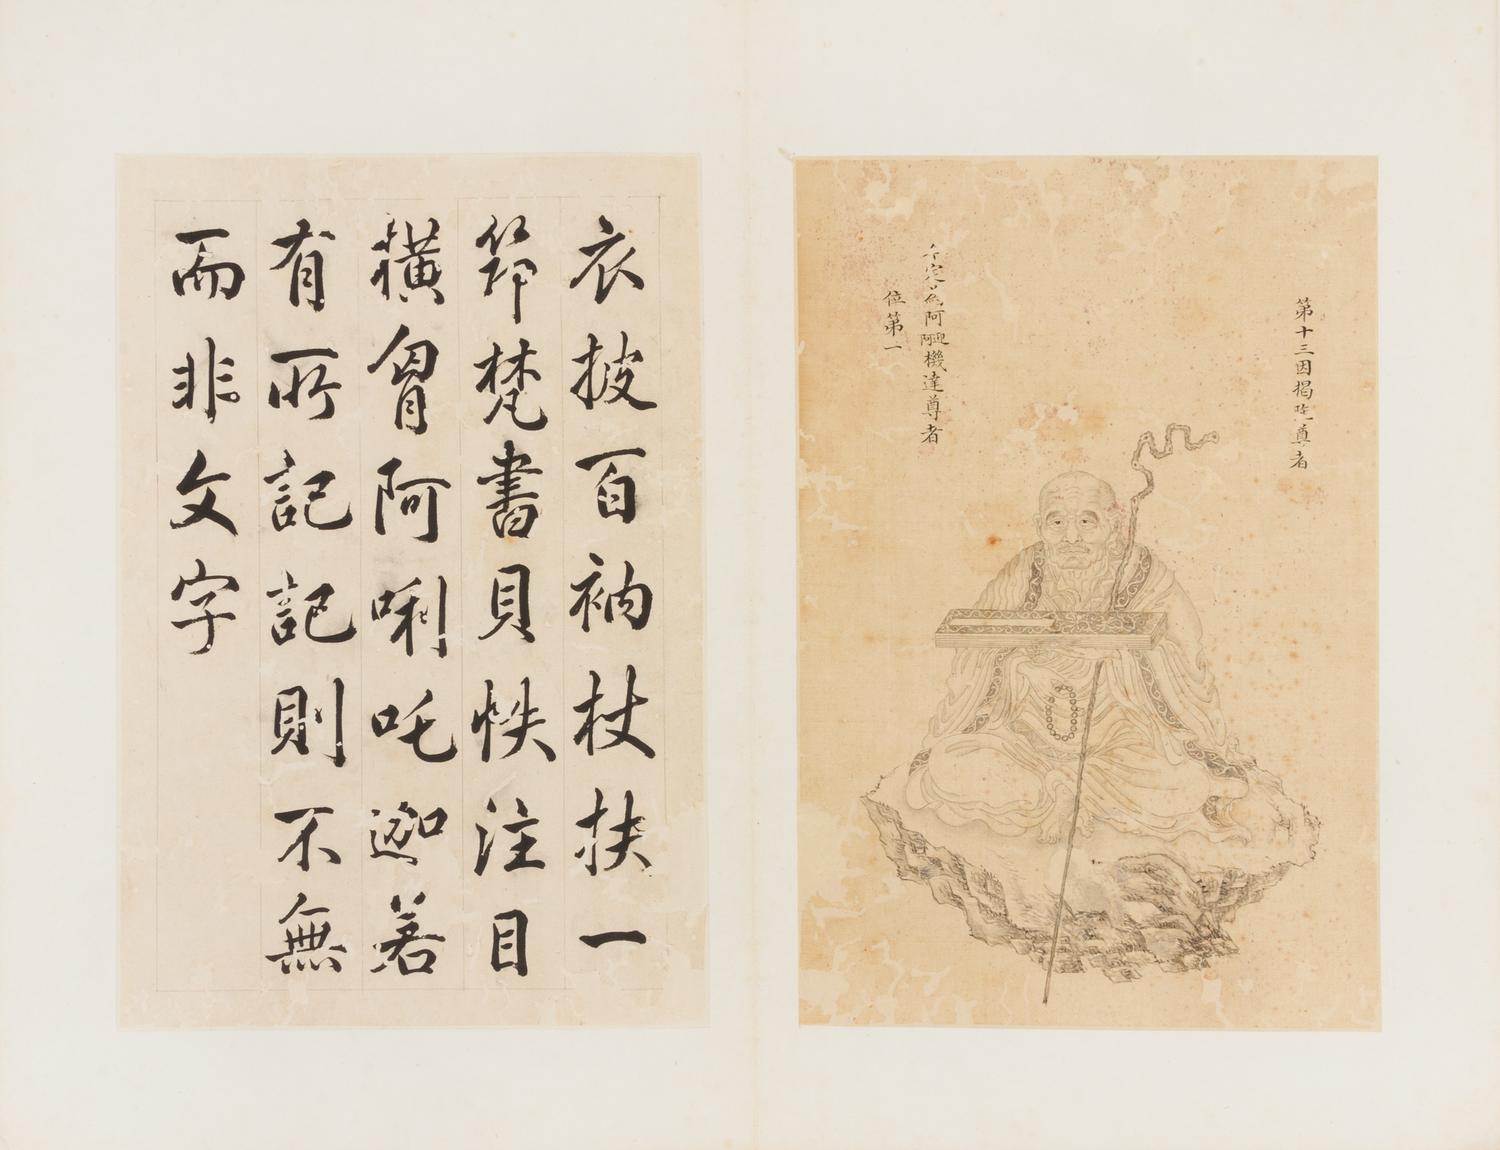 第十三因揭陀尊者
今定為阿迎阿機達尊者
位第一
衣披百衲杖扶一
筇梵書貝帙注目
橫胷阿唎吒迦若
有所記記則不無
而非文字